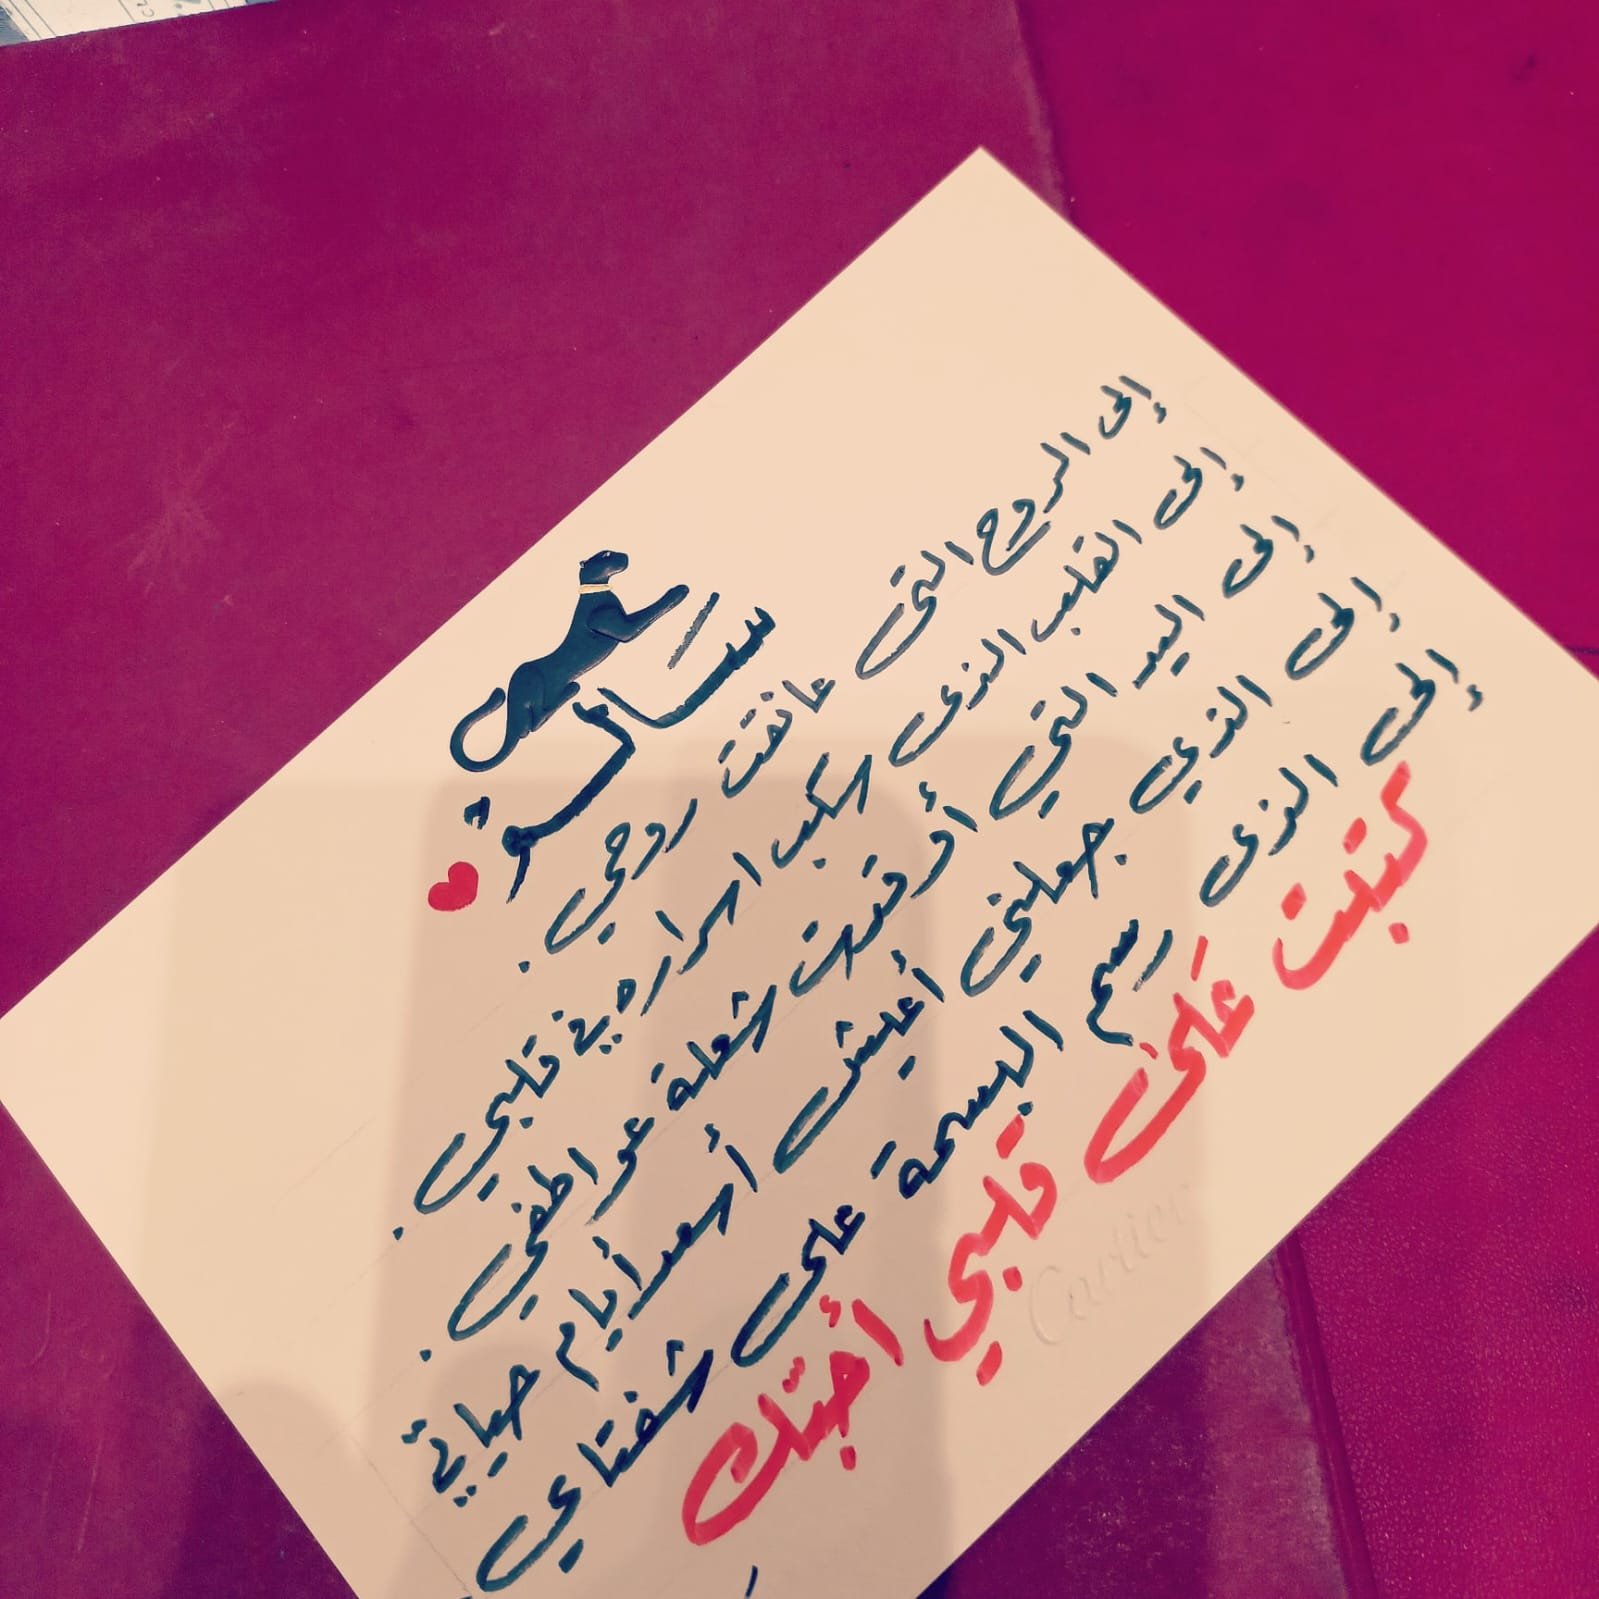 إلى الروح التي عانقت روحي.
إلى القلب الذى سكب اسراره في قلبي.
إلى اليد التي أوقدت شعلة عواطفي.
إلى الذي جعلني أعيش أسعد أيام حياتي
إلى الذى رسم البسمة على شفتاي
كتبت على قلبي أحبّك
Cartier